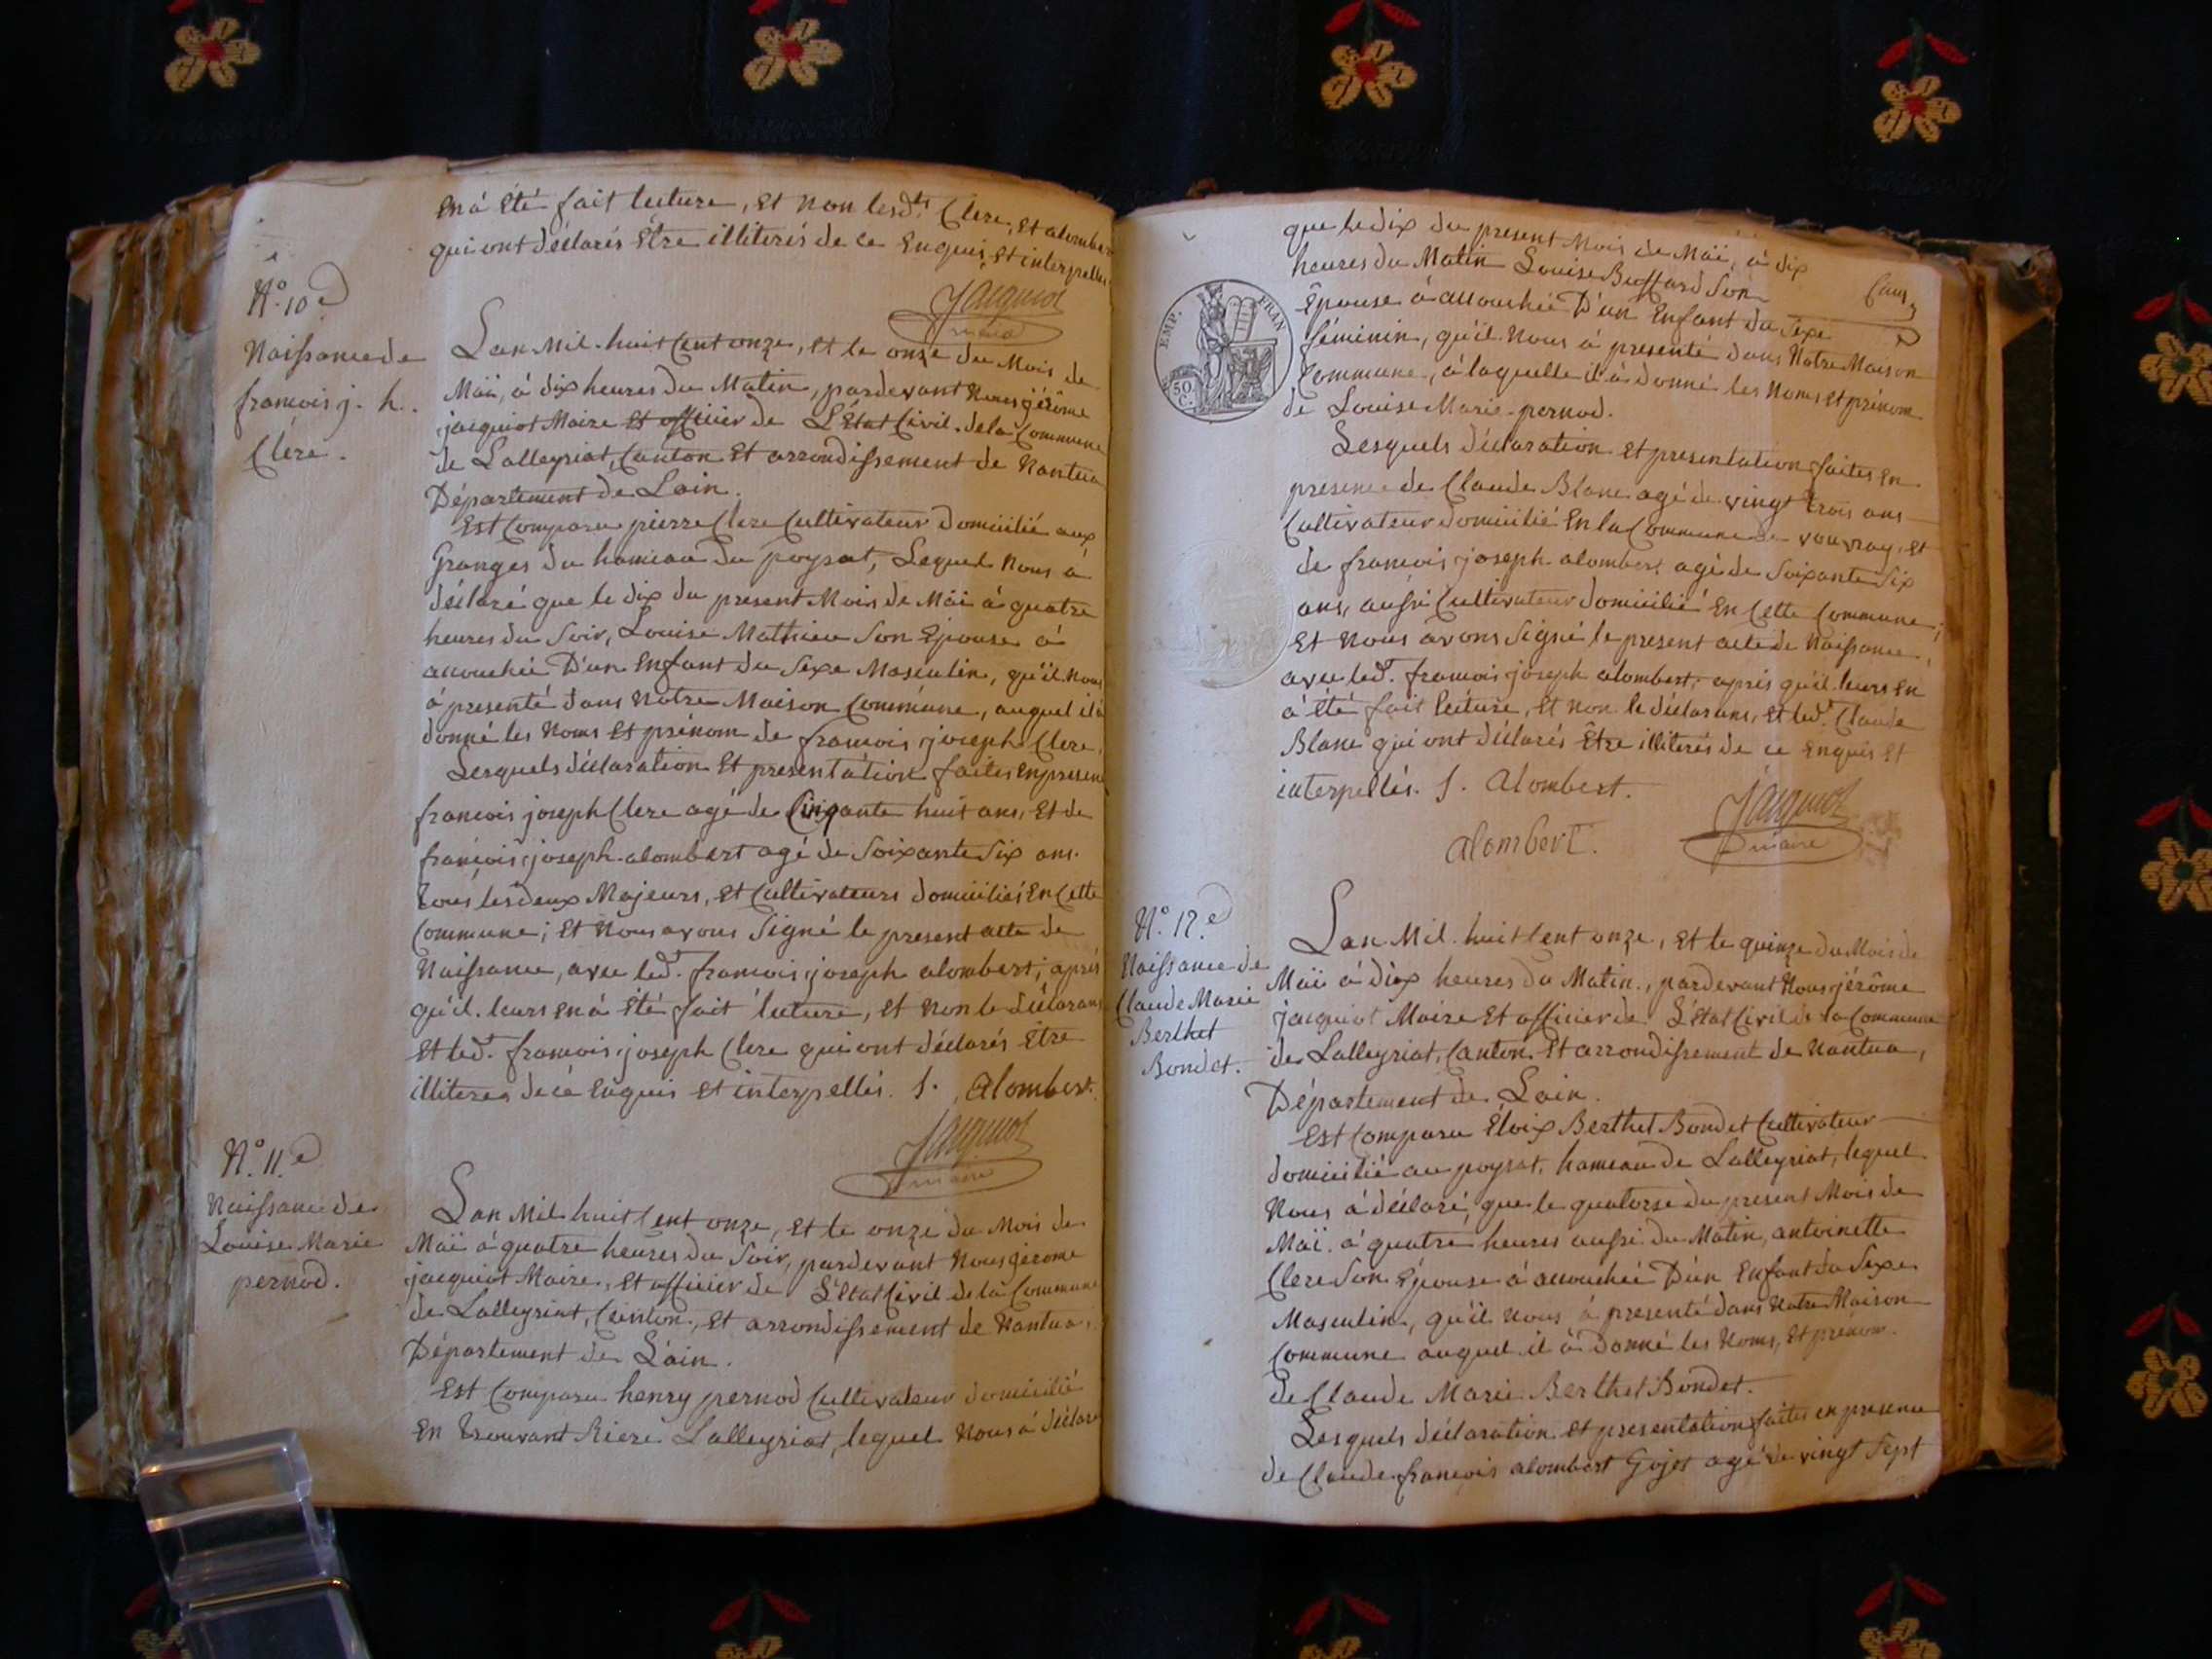 En à Été fait lecture, Et Non lesdts Clere, Et alombert
qui ont déclarés Être illiterés de ce Enquis, Et interpellés
Jacquiot
maire
N.° 10e
Naissance de
francois j. h.
Clere.
Lan Mil huit Cent onze, Et le onze du Mois de
Maï, à dix heures du Matin, pardevant Nous jérôme
jacquiot Maire Et officier de L'État Civil de la Commune
de Lalleyriat, Canton Et arrondissement de Nantua
Département de Lain.
Est Comparu pierre Clere Cultivateur Domicilié aux
Granges du hameau du poyzat, Lequel Nous à
déclaré que le dix du present Mois de Maï à quatre
heures du Soir, Louise Mathieu Son Épouse à
accouchée D'un Enfant du Sexe Masculin, qu'il Nous
à presenté dans Notre Maison Commune, auquel il à
donné les Noms Et prénom de francois joseph Clere.
Lesquels déclaration Et presentation faites En presence
francois joseph Clere agé de Cinqante huit ans, Et de
francois joseph alombert agé de Soixante Six ans.
tous les deux Majeurs, Et Cultivateurs domiciliés En Cette
Commune; Et Nous avons Signé le present acte de
Naissance, avec led. francois joseph alombert; aprés
qu'il leurs En à Été fait lecture, Et Non le déclarans
Et led. francois joseph Clere qui ont déclarés Être
illiteres de ce Enquis Et interpellés. f. Alombert.
Jacquiot
maire
N.° 11.e
Naissance de
Louise Marie
pernod.
Lan Mil huit Cent onze, Et le onze du Mois de
Maï à quatre heures du Soir, pardevant Nous jérome
jacquiot Maire, Et officier de L'État Civil de la Commune
de Lalleyriat, Canton, Et arrondissement de Nantua,
Département de L'ain.
Est Comparu henry pernod Cultivateur domicilié
En trouvant Riere Lalleyriat, lequel Nous à déclaré
que le dix du present Mois de Maï, à dix
heures du Matin Louise Buffard Son
Épouse à accouchée D'un Enfant du Sexe
féminin, qu'il Nous à presenté dans Notre Maison
Commune, à laquelle il à donné les Noms Et prénom
de Louise Marie pernod.
EMP. FRAN
50
C.
Lesquels déclaration Et presentation faites En
presence de Claude Blanc agé de vingt trois ans
Cultivateur domicilié En la Commune de vouvray, Et
de francois joseph alombert agé de Soixante Six
ans, aussi Cultivateur domicilié En Cette Commune;
Et Nous avons Signé le present acte de Naissance,
avec led. francois joseph alombert, aprés qu'il leurs En
à Été fait lecture, Et Non le déclarans, Et led. Claude
Blanc qui ont déclarés Être illiterés de ce Enquis Et
interpellés. f. Alombert.
Jacquiot
maire
alombert.
N.° 12.e
Naissance de
Claude Marie
Berthet
Bondet.
Lan Mil huit Cent onze, Et le quinze du Mois de
Maï à dix heures du Matin, pardevant Nous jérôme
jacquiot Maire Et officier de L'État Civil de la Commune
de Lalleyriat, Canton Et arrondissement de Nantua,
Département de Lain.
Est Comparu Éloix Berthet Bondet Cultivateur
domicilié au poyzat, hameau de Lalleyriat, lequel
Nous à déclaré, que le quatorse du present Mois de
Maï à quatre heures aussi du Matin, antoinette
Clere Son Épouse à accouchée D'un Enfant du Sexe
Masculin, qu'il Nous à presenté dans Notre Maison
Commune auquel il à donné les Noms, Et prénom
de Claude Marie Berthet Bondet.
Lesquels déclaration Et presentation faites en presence
de Claude francois alombert Gojet agé de vingt Sept